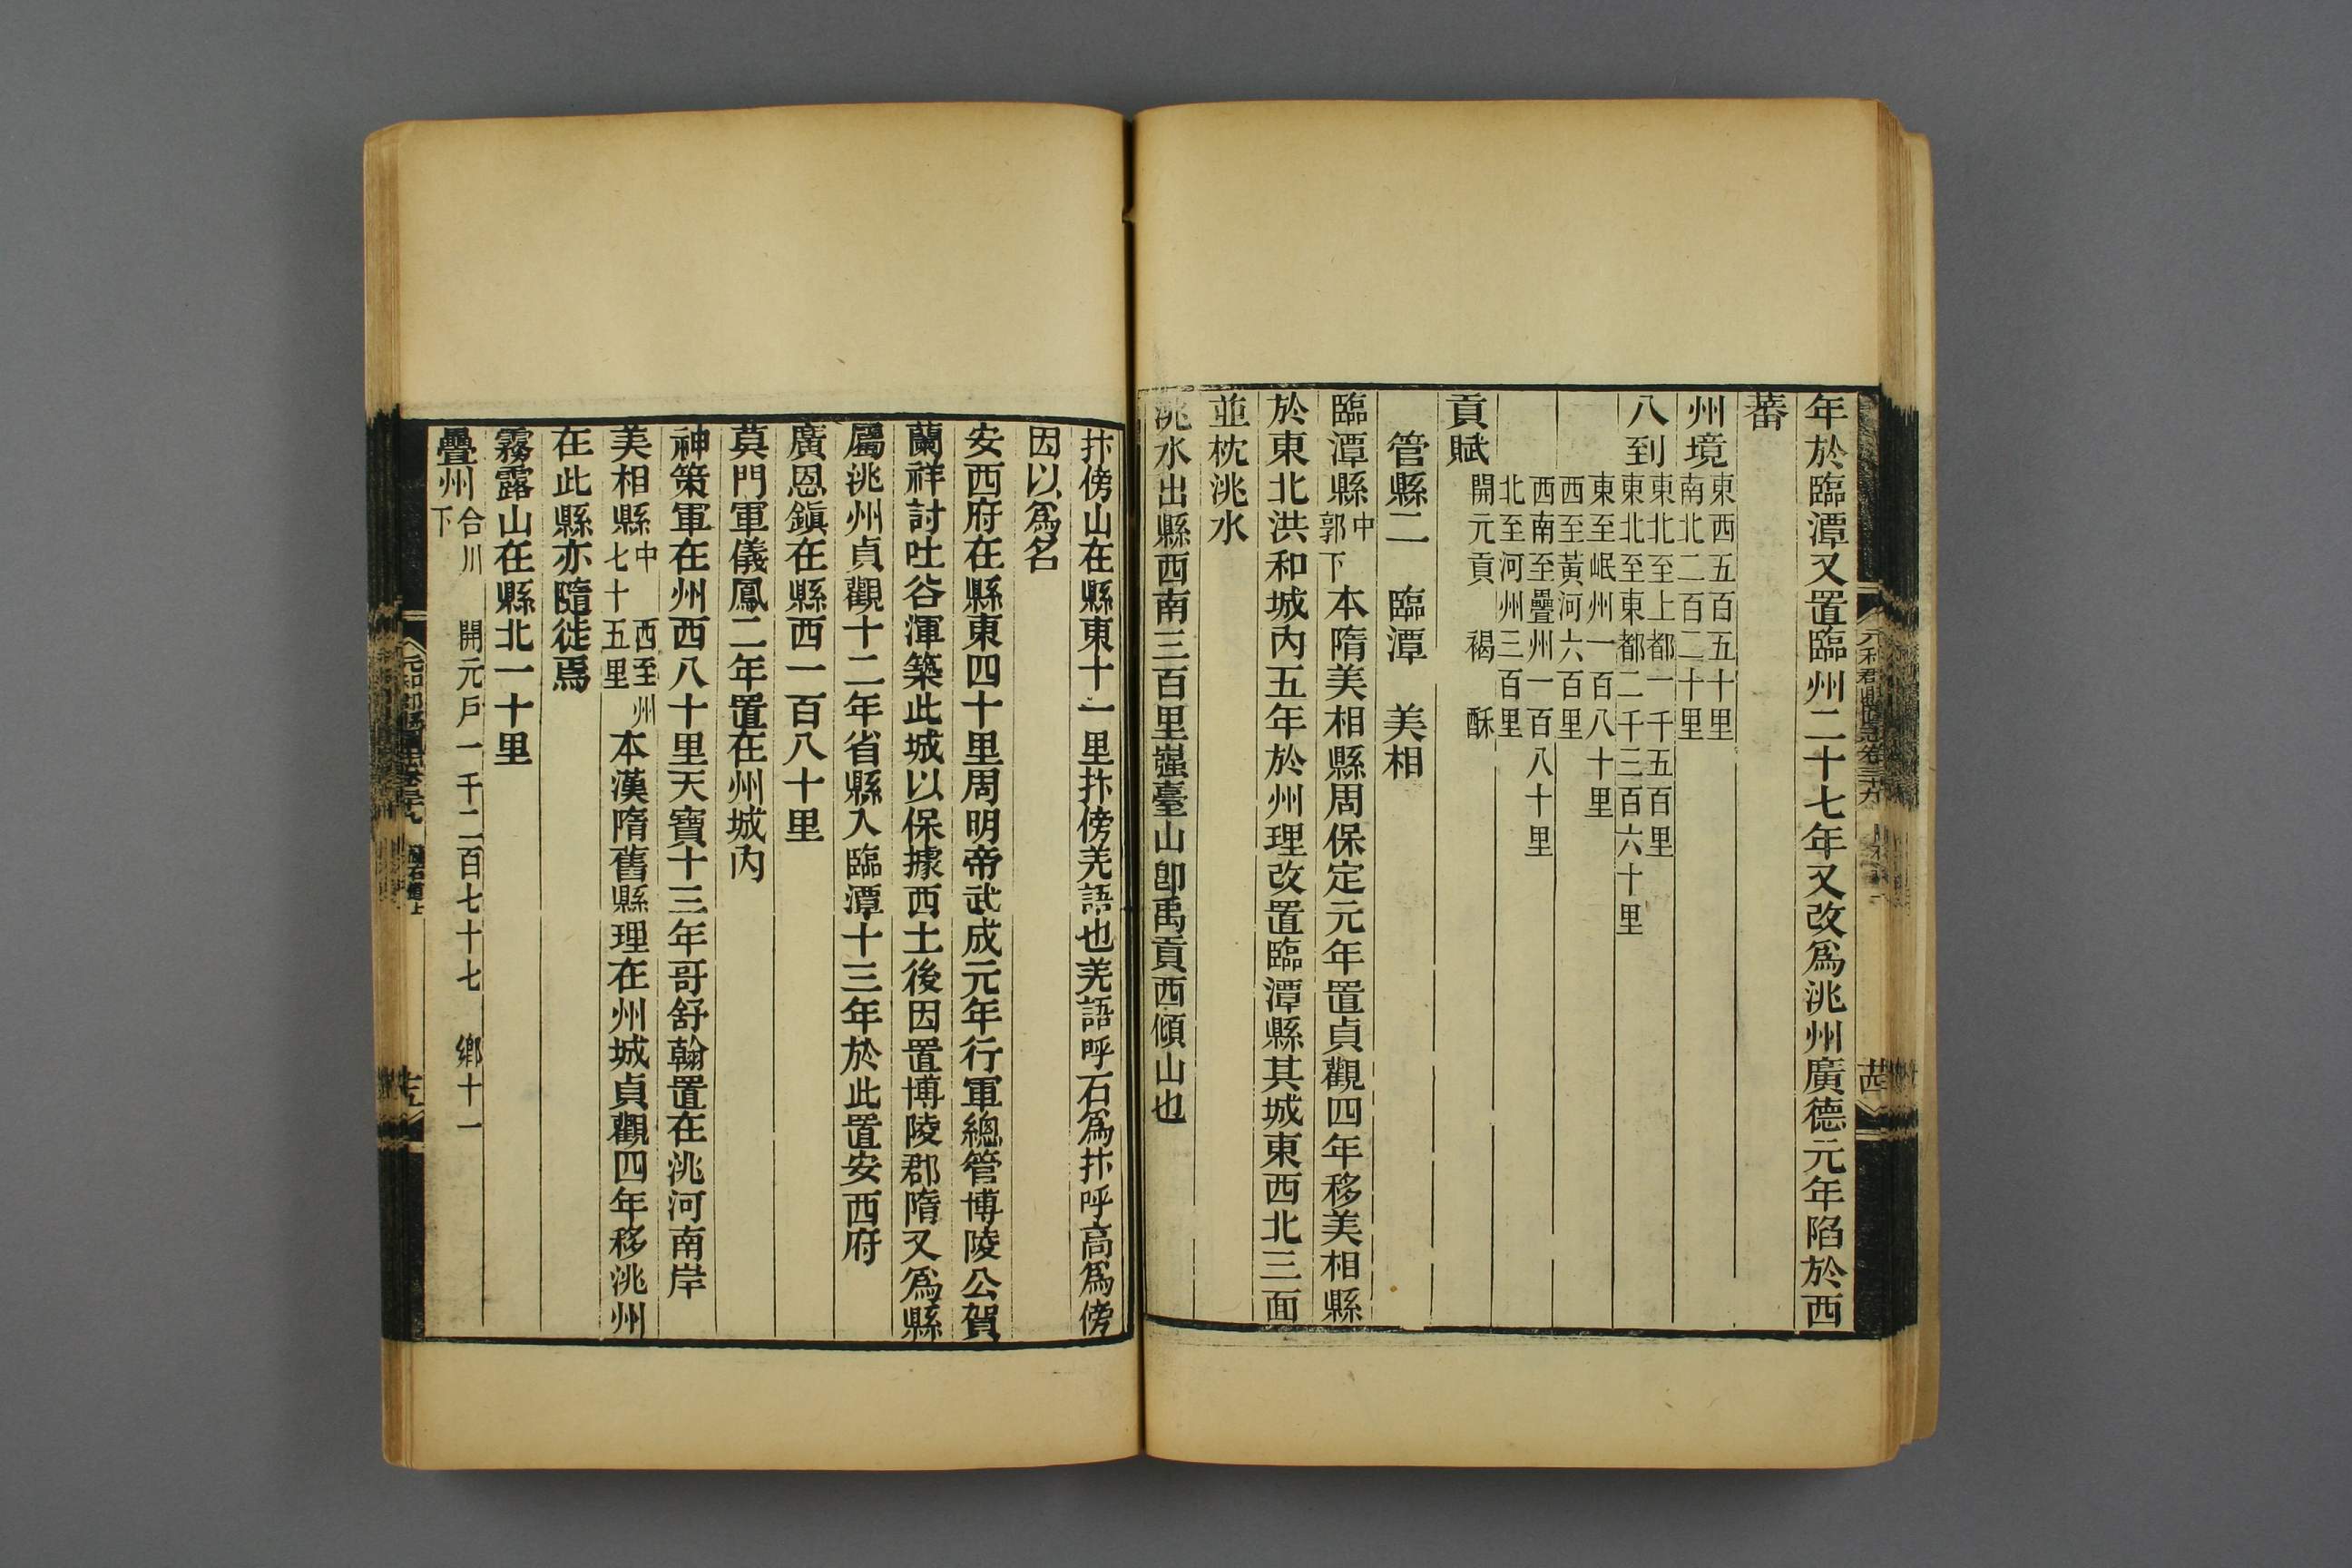 年於臨潭又置臨州二十七年又改爲洮州廣德元年陷於西
蕃
州境東西五百五十里
南北二百二十里
八到東北至上都一千五百里
東北至東都二千三百六十里
東至岷州一百八十里
西至黃河六百里
西南至疊州一百八十里
北至河州三百里
貢賦
開元貢 褐 酥
管縣二 臨潭 美相
臨潭縣中
郭下本隋美相縣周保定元年置貞觀四年移美相縣
於東北洪和城內五年於州理改置臨潭縣其城東西北三面
並枕洮水
洮水出縣西南三百里嵹臺山卽禹貢西傾山也
抃傍山在縣東十一里抃傍羌語也羌語呼石爲抃呼高爲傍
因以爲名
安西府在縣東四十里周明帝武成元年行軍總管博陵公賀
蘭祥討吐谷渾築此城以保據西土後因置博陵郡隋又爲縣
屬洮州貞觀十二年省縣入臨潭十三年於此置安西府
廣恩鎭在縣西一百八十里
莫門軍儀鳳二年置在州城內
神策軍在州西八十里天寶十三年哥舒翰置在洮河南岸
美相縣中 西至州
七十五里本漢隋舊縣理在州城貞觀四年移洮州
在此縣亦隨徙焉
霧露山在縣北一十里
疊州合川
下 開元戶一千二百七十七 鄉十一